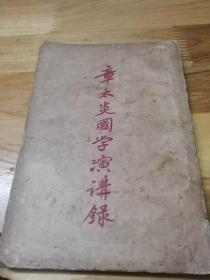 章太炎國学演講錄